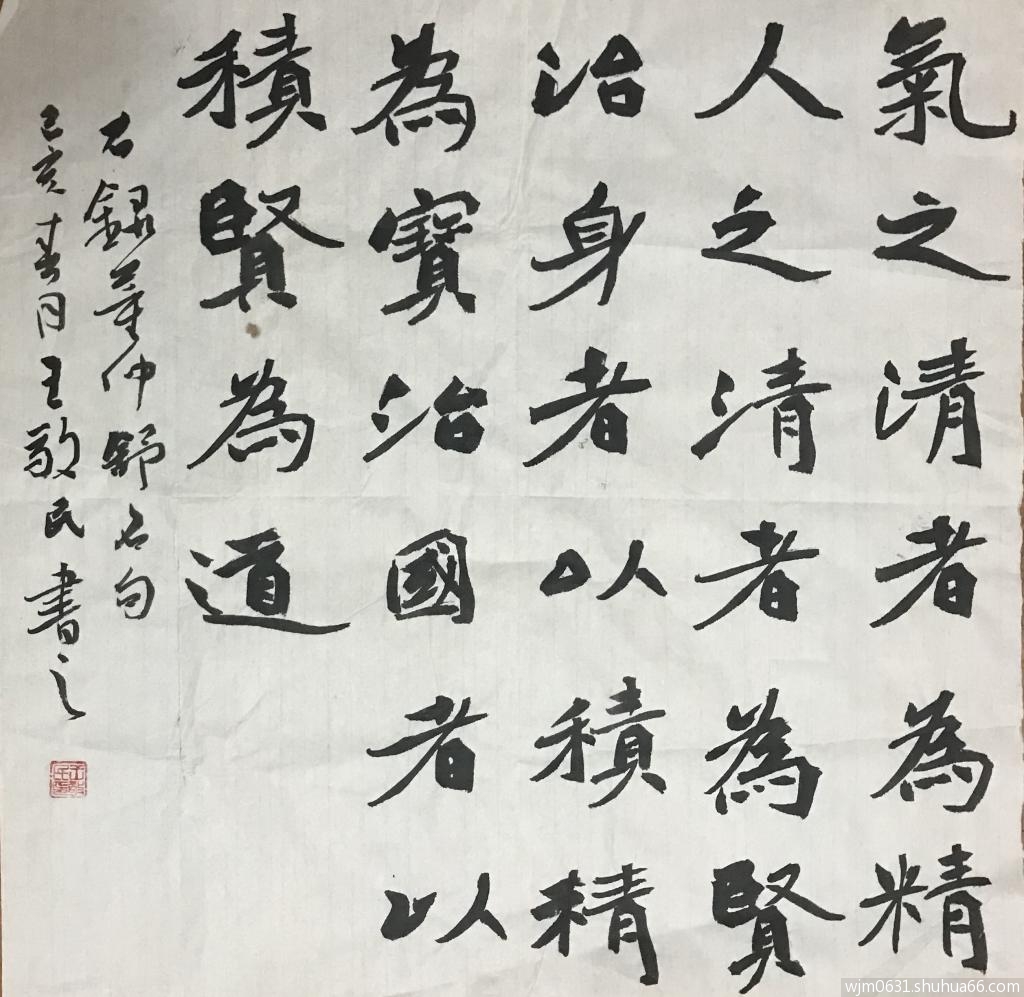 氣之清者為精
人之清者為賢
治身者以積精
為寶治國者以
積賢為道
右錄董仲舒名句
己亥春月王敬民書之
wjm0631.shuhua66.com